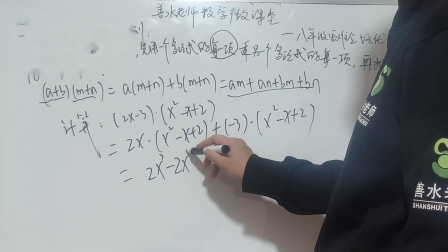 善水老师数学微课堂
——八年级
先用一个多项式的每一项乘另一个多项式的每一项,再
(a+b)(m+n)=a(m+n)+b(m+n)=am+an+bm+bn
计算:(2x-3)·(x²-x+2)
=2x·(x²-x+2)+(-3)·(x²-x+2)
=2x³-2x
老师
善水
SHANSHUI T